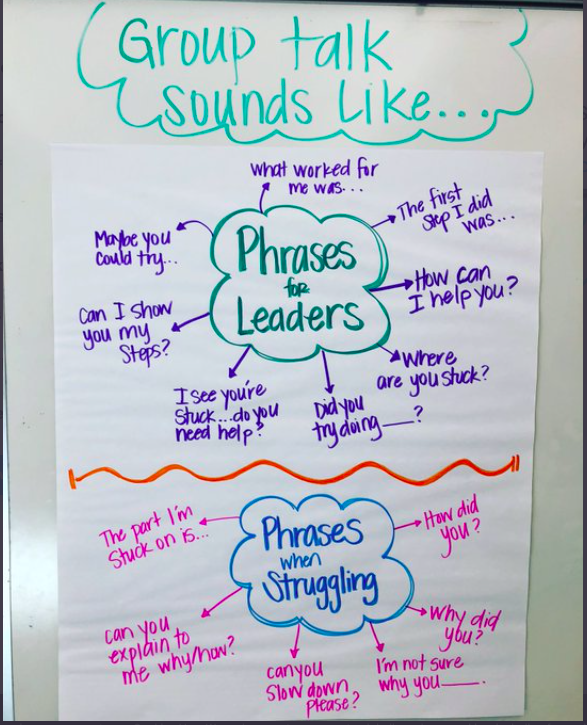 Group talk
sounds Like...
what worked for
me was...
The first
step I did
was...
Maybe you
could try...
Phrases
for
Leaders
How can
I help you?
Can I show
you my
Steps?
Where
are you stuck?
I see you're
Stuck...do you
need help?
Did you
try doing ___?
The part I'm
Stuck on is...
Phrases
when
Struggling
How did
you?
can you
explain to
me why/how?
Why did
you?
can you
Slow down
Please?
I'm not sure
why you ___.